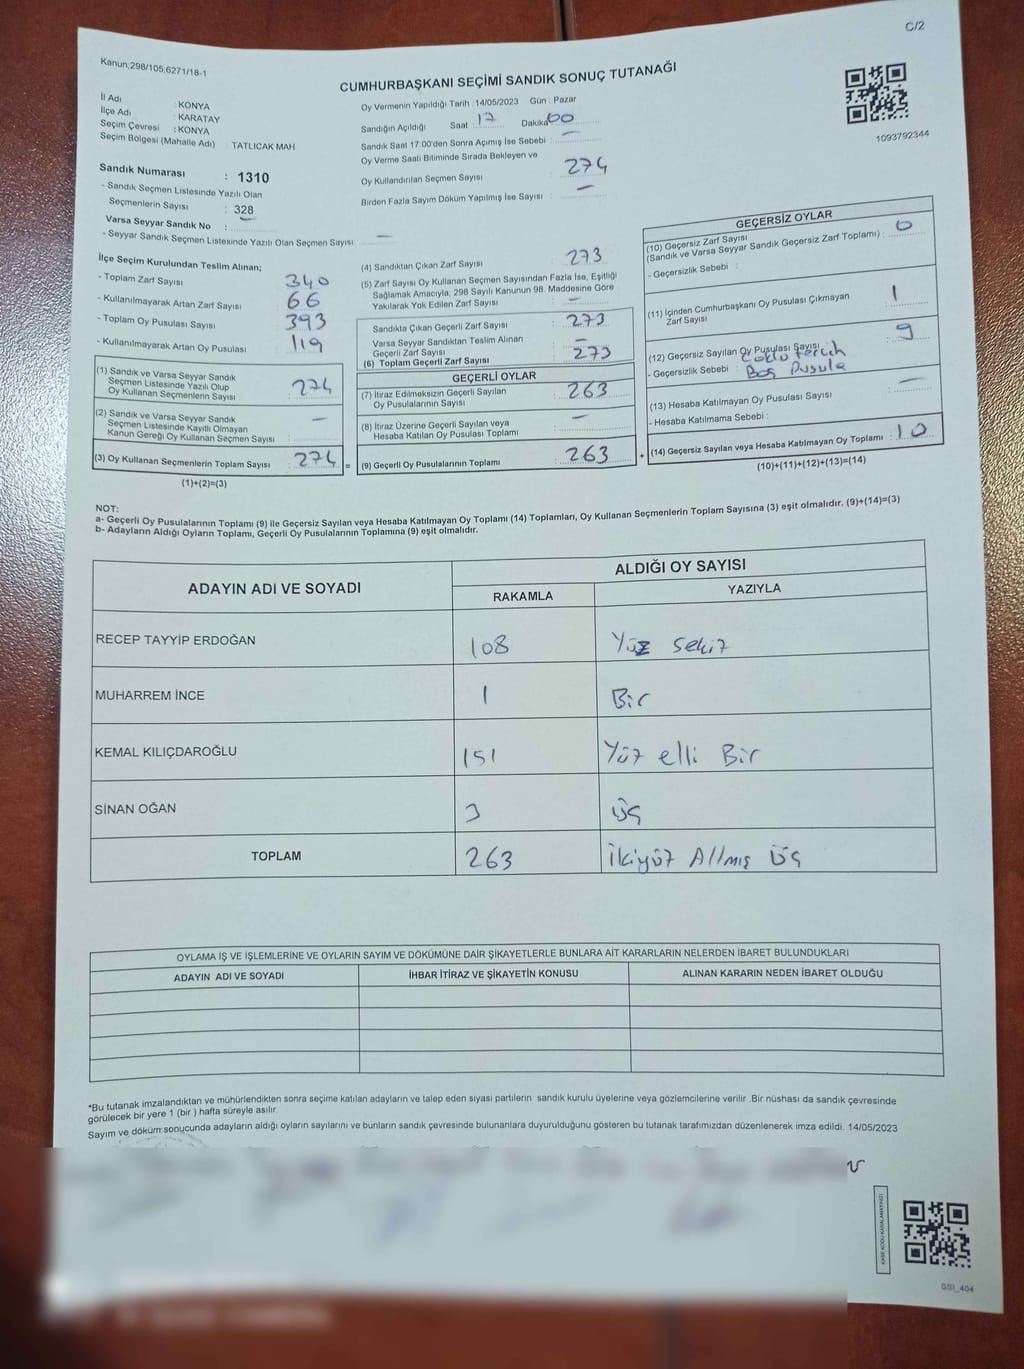 C/2
Kanun;298/105;6271/18-1
CUMHURBAŞKANI SEÇİMİ SANDIK SONUÇ TUTANAĞI
İl Adı : KONYA
İlçe Adı : KARATAY
Seçim Çevresi : KONYA
Seçim Bölgesi (Mahalle Adı) : TATLICAK MAH
Oy Vermenin Yapıldığı Tarih : 14/05/2023 Gün : Pazar
Sandığın Açıldığı Saat 17 Dakika 00
Sandık Saat 17:00'den Sonra Açımış İse Sebebi : —
Oy Verme Saati Bitiminde Sırada Bekleyen ve
Oy Kullandırılan Seçmen Sayısı : 274
Birden Fazla Sayım Döküm Yapılmış İse Sayısı : —
1093792344
Sandık Numarası : 1310
- Sandık Seçmen Listesinde Yazılı Olan
Seçmenlerin Sayısı : 328
Varsa Seyyar Sandık No : —
- Seyyar Sandık Seçmen Listesinde Yazılı Olan Seçmen Sayısı: —
İlçe Seçim Kurulundan Teslim Alınan;
- Toplam Zarf Sayısı : 340
- Kullanılmayarak Artan Zarf Sayısı : 66
- Toplam Oy Pusulası Sayısı : 393
- Kullanılmayarak Artan Oy Pusulası : 119
(1) Sandık ve Varsa Seyyar Sandık
Seçmen Listesinde Yazılı Olup
Oy Kullanan Seçmenlerin Sayısı : 274
(2) Sandık ve Varsa Seyyar Sandık
Seçmen Listesinde Kayıtlı Olmayan
Kanun Gereği Oy Kullanan Seçmen Sayısı : —
(3) Oy Kullanan Seçmenlerin Toplam Sayısı : 274 =
(1)+(2)=(3)
(4) Sandıktan Çıkan Zarf Sayısı : 273
(5) Zarf Sayısı Oy Kullanan Seçmen Sayısından Fazla İse, Eşitliği
Sağlamak Amacıyla, 298 Sayılı Kanunun 98. Maddesine Göre
Yakılarak Yok Edilen Zarf Sayısı : —
Sandıkta Çıkan Geçerli Zarf Sayısı : 273
Varsa Seyyar Sandıktan Teslim Alınan
Geçerli Zarf Sayısı : —
(6) Toplam Geçerli Zarf Sayısı : 273
GEÇERLİ OYLAR
(7) İtiraz Edilmeksizin Geçerli Sayılan
Oy Pusulalarının Sayısı : 263
(8) İtiraz Üzerine Geçerli Sayılan veya
Hesaba Katılan Oy Pusulası Toplamı : —
(9) Geçerli Oy Pusulalarının Toplamı : 263 +
GEÇERSİZ OYLAR
(10) Geçersiz Zarf Sayısı
(Sandık ve Varsa Seyyar Sandık Geçersiz Zarf Toplamı) : 0
- Geçersizlik Sebebi :
(11) İçinden Cumhurbaşkanı Oy Pusulası Çıkmayan
Zarf Sayısı : 1
(12) Geçersiz Sayılan Oy Pusulası Sayısı : 9
- Geçersizlik Sebebi : Çoklu tercih
Boş Pusula
(13) Hesaba Katılmayan Oy Pusulası Sayısı : —
- Hesaba Katılmama Sebebi :
(14) Geçersiz Sayılan veya Hesaba Katılmayan Oy Toplamı : 10
(10)+(11)+(12)+(13)=(14)
NOT:
a- Geçerli Oy Pusulalarının Toplamı (9) ile Geçersiz Sayılan veya Hesaba Katılmayan Oy Toplamı (14) Toplamları, Oy Kullanan Seçmenlerin Toplam Sayısına (3) eşit olmalıdır. (9)+(14)=(3)
b- Adayların Aldığı Oyların Toplamı, Geçerli Oy Pusulalarının Toplamına (9) eşit olmalıdır.
ADAYIN ADI VE SOYADI ALDIĞI OY SAYISI
RAKAMLA YAZIYLA
RECEP TAYYİP ERDOĞAN 108 Yüz sekiz
MUHARREM İNCE 1 Bir
KEMAL KILIÇDAROĞLU 151 Yüz elli Bir
SİNAN OĞAN 3 üç
TOPLAM 263 İkiyüz Atmış üç
OYLAMA İŞ VE İŞLEMLERİNE VE OYLARIN SAYIM VE DÖKÜMÜNE DAİR ŞİKAYETLERLE BUNLARA AİT KARARLARIN NELERDEN İBARET BULUNDUKLARI
ADAYIN ADI VE SOYADI İHBAR İTİRAZ VE ŞİKAYETİN KONUSU ALINAN KARARIN NEDEN İBARET OLDUĞU
*Bu tutanak imzalandıktan ve mühürlendikten sonra seçime katılan adayların ve talep eden siyasi partilerin sandık kurulu üyelerine veya gözlemcilerine verilir .Bir nüshası da sandık çevresinde
görülecek bir yere 1 (bir ) hafta süreyle asılır.
Sayım ve döküm sonucunda adayların aldığı oyların sayılarını ve bunların sandık çevresinde bulunanlara duyurulduğunu gösteren bu tutanak tarafımızdan düzenlenerek imza edildi. 14/05/2023
GSI_404